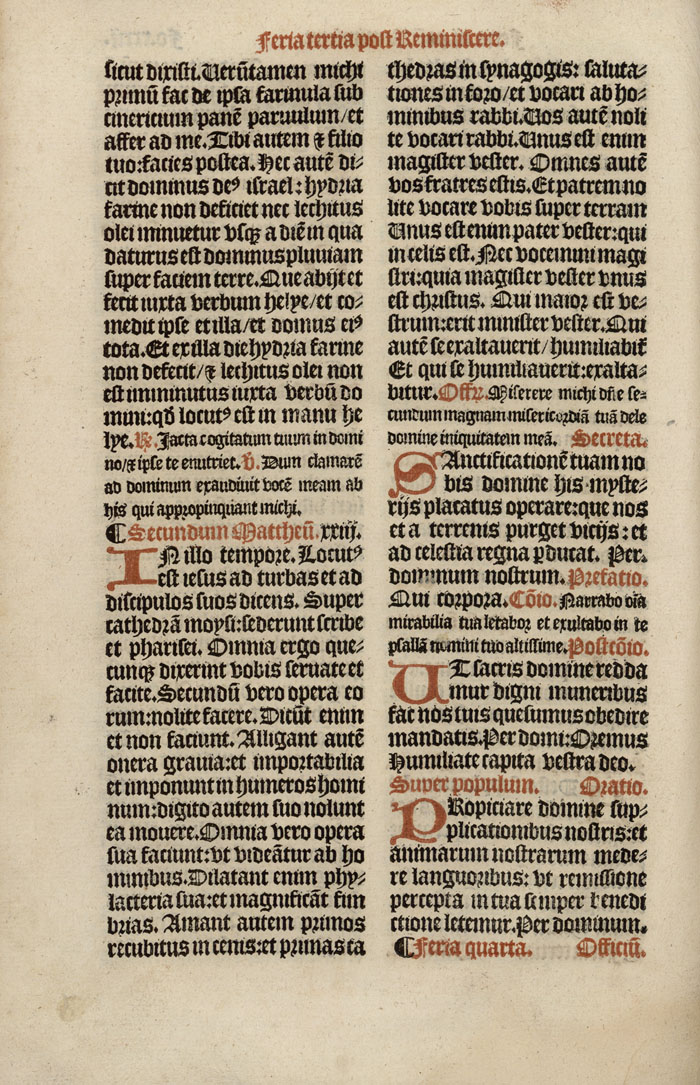 Feria tertia post Reminiscere.
sicut dixisti. Verūtamen michi
primū fac de ipsa farinula sub
cinericium panē paruulum/et
affer ad me. Tibi autem ⁊ filio
tuo: facies postea. Hec autē di⸗
cit dominus deꝰ israel: hydria
farine non deficiet nec lechitus
olei minuetur vsqꝫ a diē in qua
daturus est dominus pluuiam
super faciem terre. Que abijt et
fecit iuxta verbum helye/et co⸗
medit ipse et illa/et domus eiꝰ
tota. Et ex illa die hydria farine
non defecit/⁊ lechitus olei non
est imminutus iuxta verbū do
mini: qđ locutꝰ est in manu he
lye. ℟. Jacta cogitatum tuum in domi
no/⁊ ipse te enutriet. ℣. Dum clamarē
ad dominum exaudiuit vocē meam ab
his qui appropinquant michi.
¶ Secundum Mattheū. xxiij.
IN illo tempore. Locutꝰ
est iesus ad turbas et ad
discipulos suos dicens. Super
cathedrā moysi: sederunt scribe
et pharisei. Omnia ergo que⸗
cunqꝫ dixerint vobis seruate et
facite. Secundū vero opera eo
rum: nolite facere. Dicūt enim
et non faciunt. Alligant autē
onera grauia: et importabilia
et imponunt in humeros homi
num: digito autem suo nolunt
ea mouere. Omnia vero opera
sua faciunt: vt videātur ab ho
minibus. Dilatant enim phy⸗
lacteria sua: et magnificāt fim
brias. Amant autem primos
recubitus in cenis: et primas ca
thedras in synagogis: saluta⸗
tiones in foro/et vocari ab ho⸗
minibus rabbi. Vos autē noli
te vocari rabbi. Vnus est enim
magister vester. Omnes autē
vos fratres estis. Et patrem no
lite vocare vobis super terram
Vnus est enim pater vester: qui
in celis est. Nec vocemini magi
stri: quia magister vester vnus
est christus. Qui maior est ve⸗
strum: erit minister vester. Qui
autē se exaltauerit/humiliabit̄
Et qui se humiliauerit: exalta⸗
bitur. Offꝝ. Miserere michi dn̄e se⸗
cundum magnam misericordiā tuā dele
domine iniquitatem meā. Secreta.
SAnctificationē tuam no
bis domine his myste⸗
rijs placatus operare: que nos
et a terrenis purget vicijs: et
ad celestia regna ꝑducat. Per.
dominum nostrum. Prefatio.
Qui corpora. Cōio. Narrabo oīa
mirabilia tua letabor et exultabo in te
psallā nomini tuo altissime. Postcōio.
VT sacris domine redda
mur digni muneribus
fac nos tuis quesumus obedire
mandatis. Per domi: Oremus
Humiliate capita vestra deo.
Super populum. Oratio.
PRopiciare domine sup⸗
plicationibus nostris: et
animarum nostrarum mede⸗
re languoribus: vt remissione
percepta in tua semper benedi
ctione letemur. Per dominum.
¶ Feria quarta. Officiū.